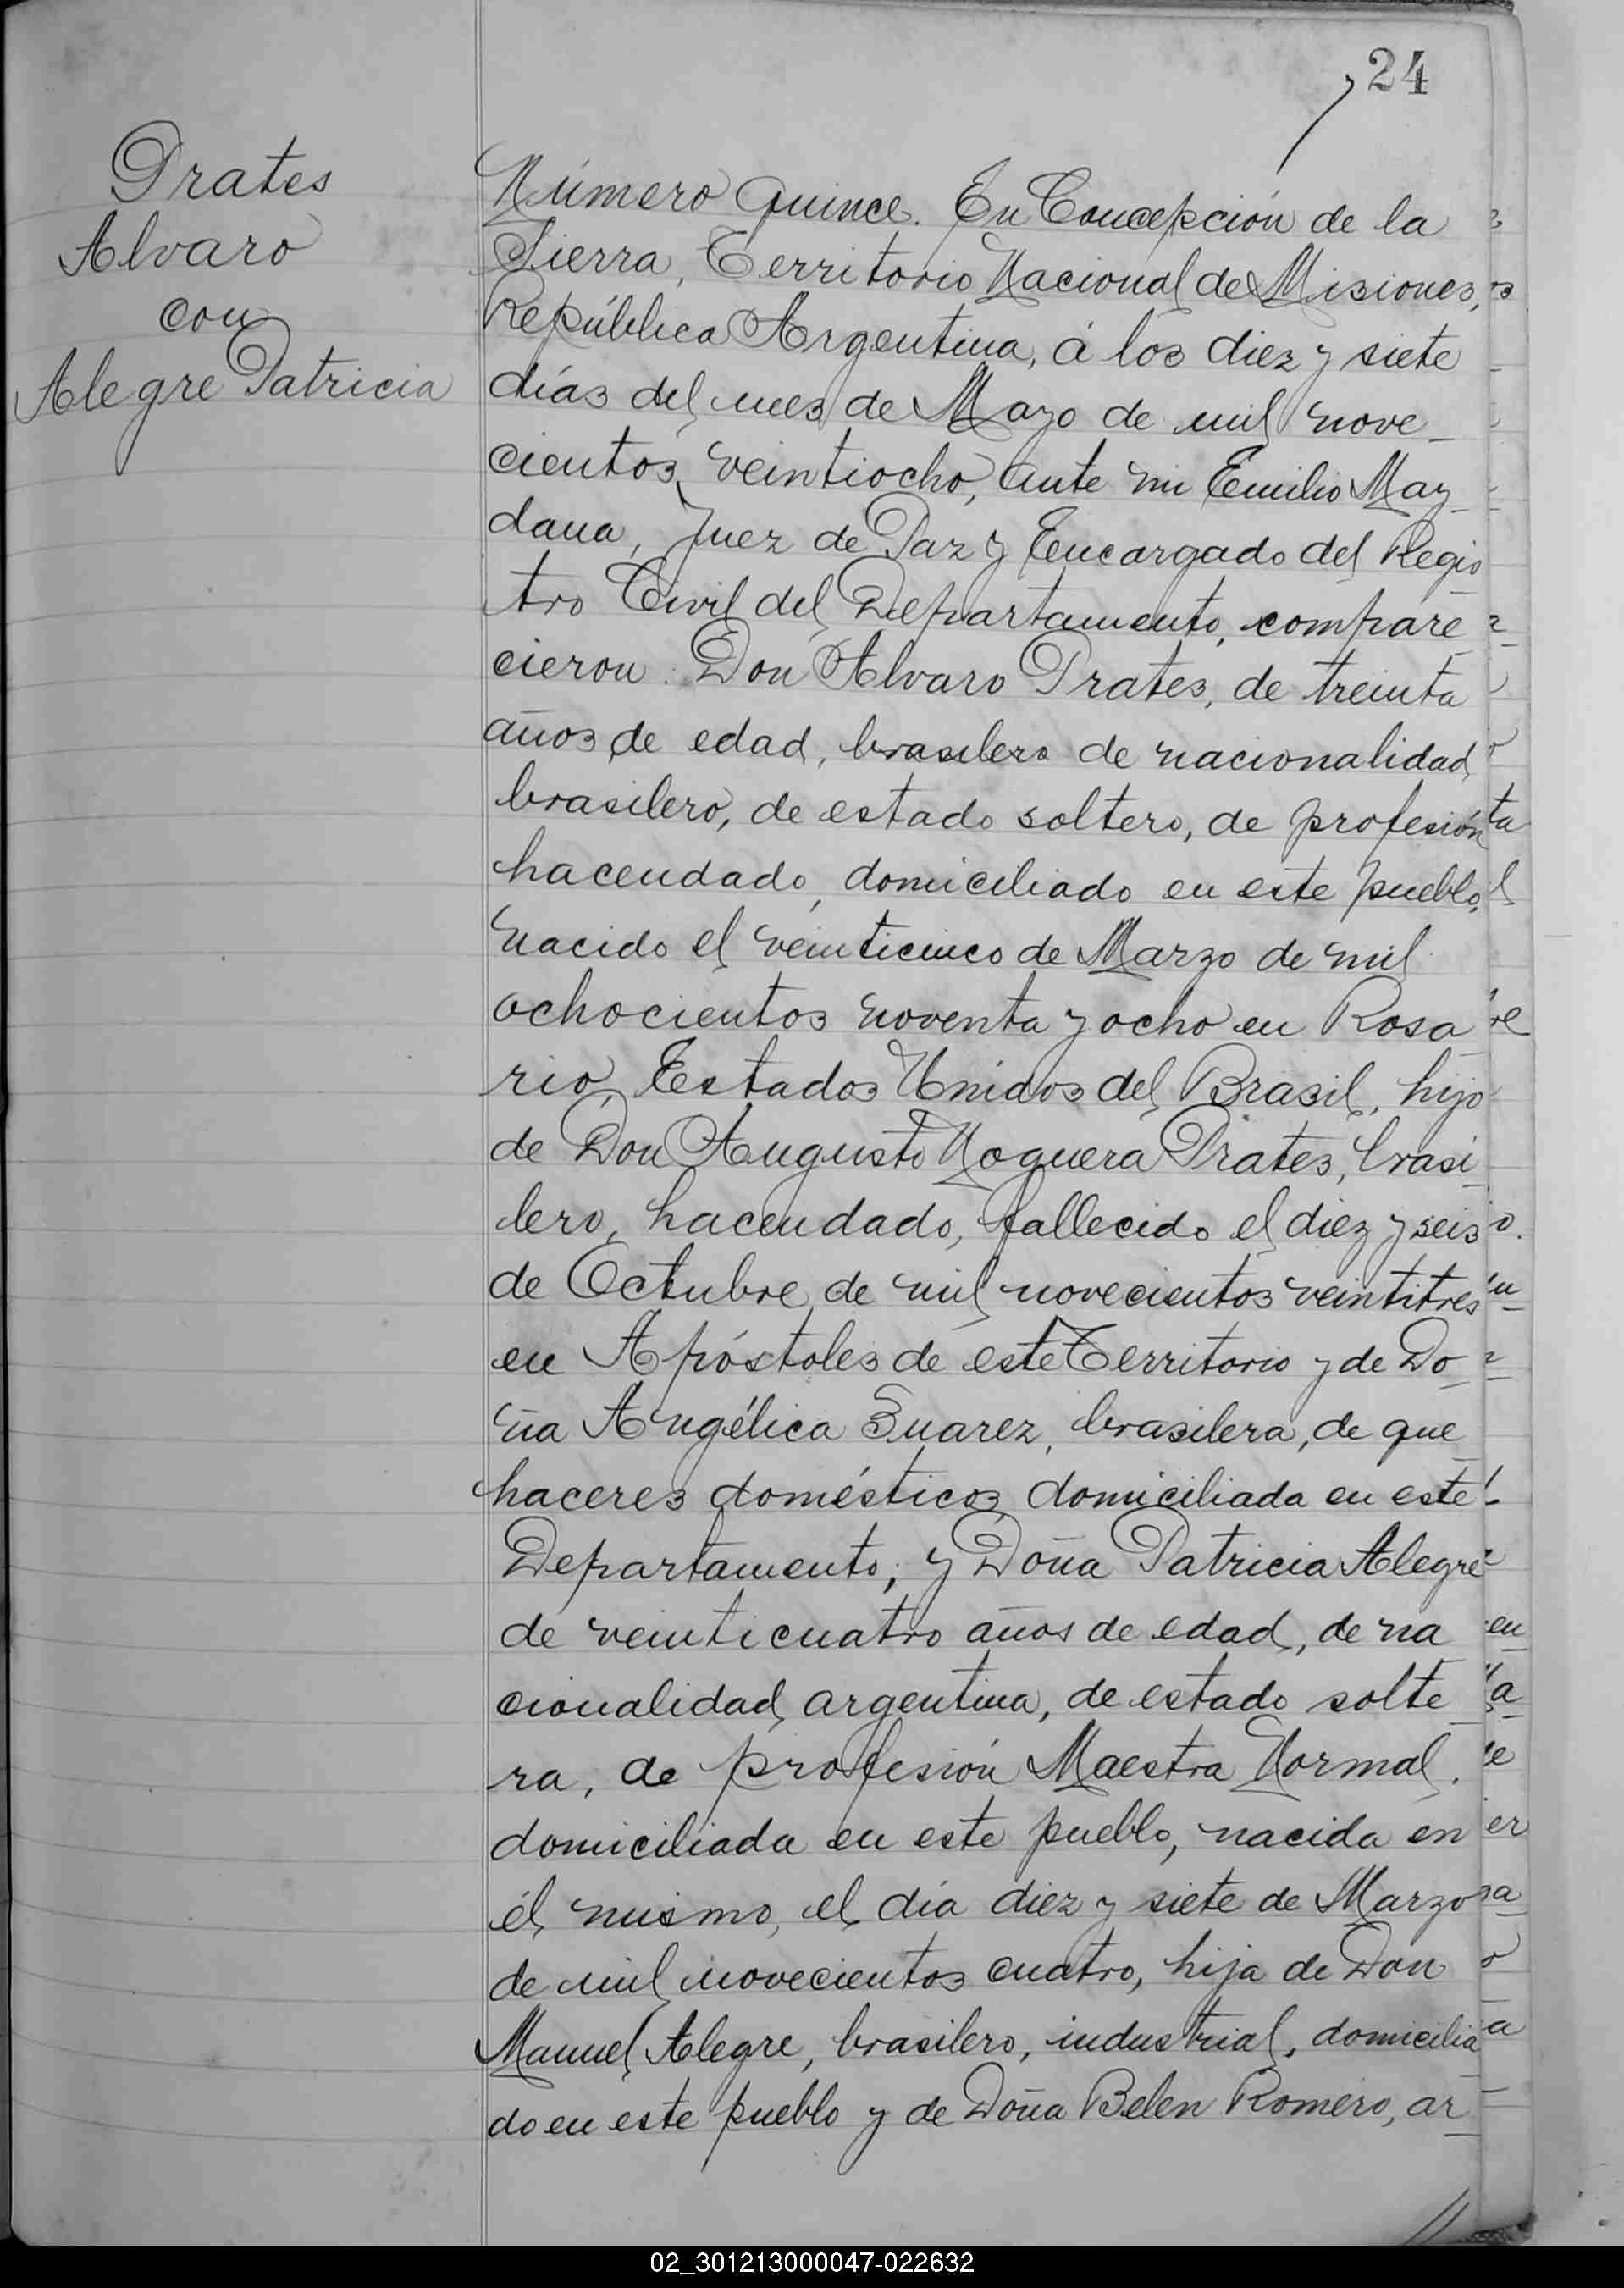 24
Prates
Alvaro
con
Alegre Patricia
Número quince. En Concepción de la
Sierra, Territorio Nacional de Misiones,
República Argentina, á los diez y siete
días del mes de Mayo de mil nove_
cientos veintiocho, ante mi Emilio May_
dana, Juez de Paz y Encargado del Regis
tro Civil del Departamento, compare_
cieron: Don Alvaro Prates, de treinta
años de edad, brasilero de nacionalidad
brasilero, de estado soltero, de profesión
hacendado, domiciliado en este pueblo,
nacido el veinticinco de Marzo de mil
ochocientos noventa y ocho en Rosa_
rio, Estados Unidos del Brasil, hijo
de Don Augusto Noguera Prates, brasi_
lero, hacendado, fallecido el diez y seis
de Octubre de mil novecientos veintitres
en Apóstoles de este Territorio y de Do_
ña Angélica Suarez, brasilera, de que_
haceres domésticos domiciliada en este
Departamento; y Doña Patricia Alegre
de veinticuatro años de edad, de na_
cionalidad argentina, de estado solte_
ra, de profesión Maestra Normal,
domiciliada en este pueblo, nacida en
él mismo, el día diez y siete de Marzo
de mil novecientos cuatro, hija de Don
Manuel Alegre, brasilero, industrial, domicilia_
do en este pueblo y de Doña Belen Romero, ar_
02_301213000047-022632